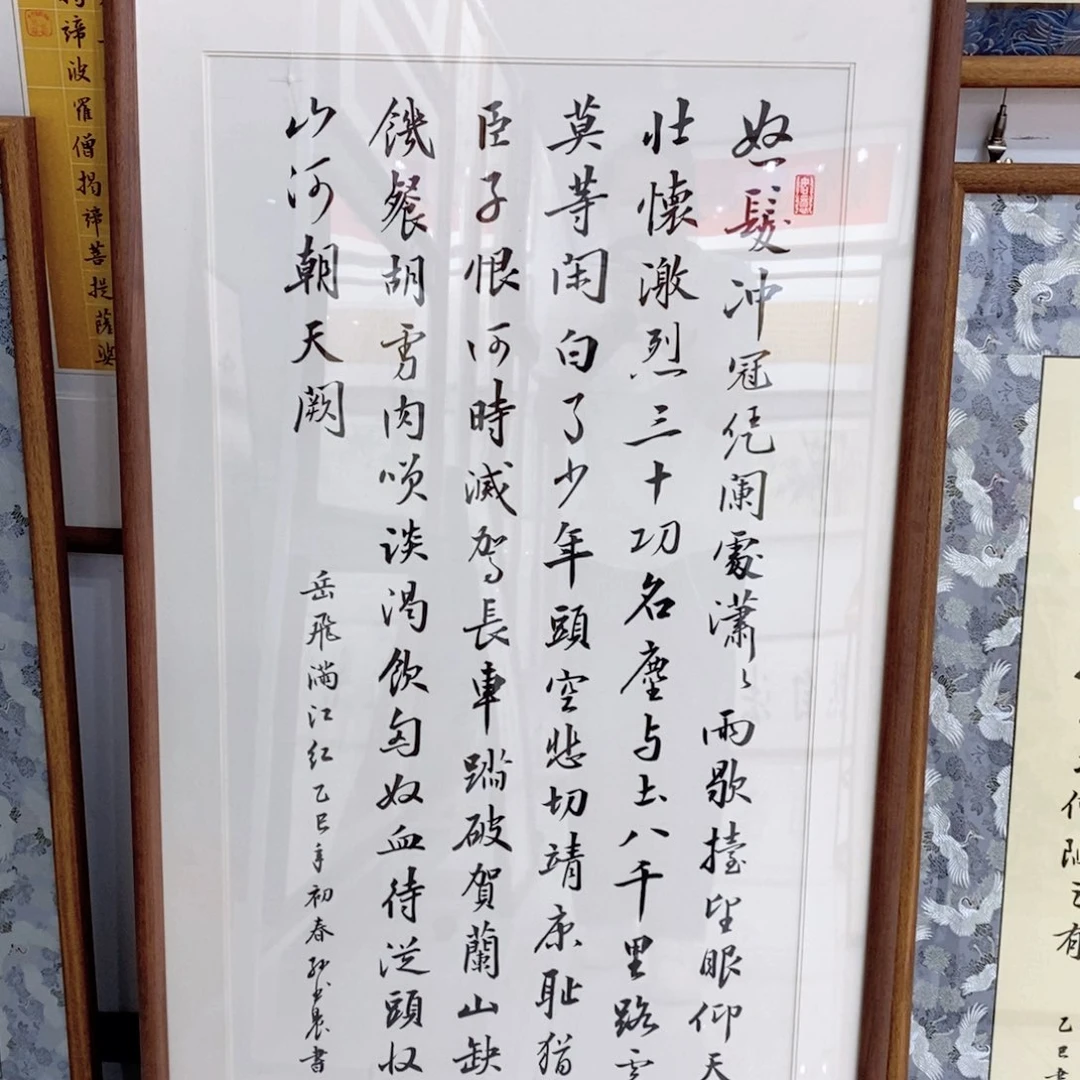 怒髮冲冠凭闌處瀟〻雨歇擡望眼仰天
壮懷激烈三十功名塵与土八千里路雲
莫等闲白了少年頭空悲切靖康耻猶
臣子恨何時滅駕長車踏破賀蘭山缺
饑餐胡虏肉笑談渴飲匈奴血待從頭收
山河朝天闕
岳飛滿江红乙巳年初春
書
諦波羅僧揭諦菩提薩婆
乙巳